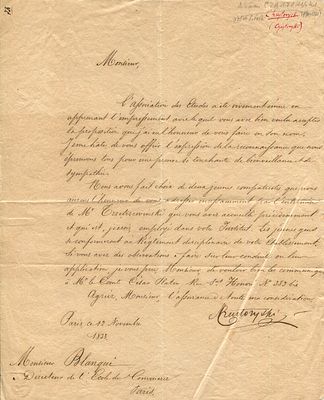 Monsieur,
L'association des Etudes a été vivement émue en
apprenant l'empressement avec lequel vous avez bien voulu accepter
la proposition que j'ai eu l'honneur de vous faire en son nom.
J'ai hâte de vous offrir l'expression de la reconnaissance que nous
éprouvons tous pour une preuve si touchante de bienveillance et de
sympathie.
Nous avons fait choix de deux jeunes compatriotes que nous
aurons l'honneur de vous adresser par l'entremise
de Mr que vous avez accueilli précédemment
et qui est, je crois, employé dans votre Institut. Les jeunes gens
se conformeront au Règlement disciplinaire de votre Etablissement.
Si vous avez des observations à faire sur leur conduite ou leur
application, je vous prie, Monsieur, de vouloir bien les communiquer
à Mr le Comte César Plater Rue St Honoré No 383
Agréez, Monsieur, l'assurance de toute ma considération
Czartoryski
Paris ce 12 Novembre
1832
Monsieur Blanqui
Directeur de l'Ecole de Commerce
Paris.